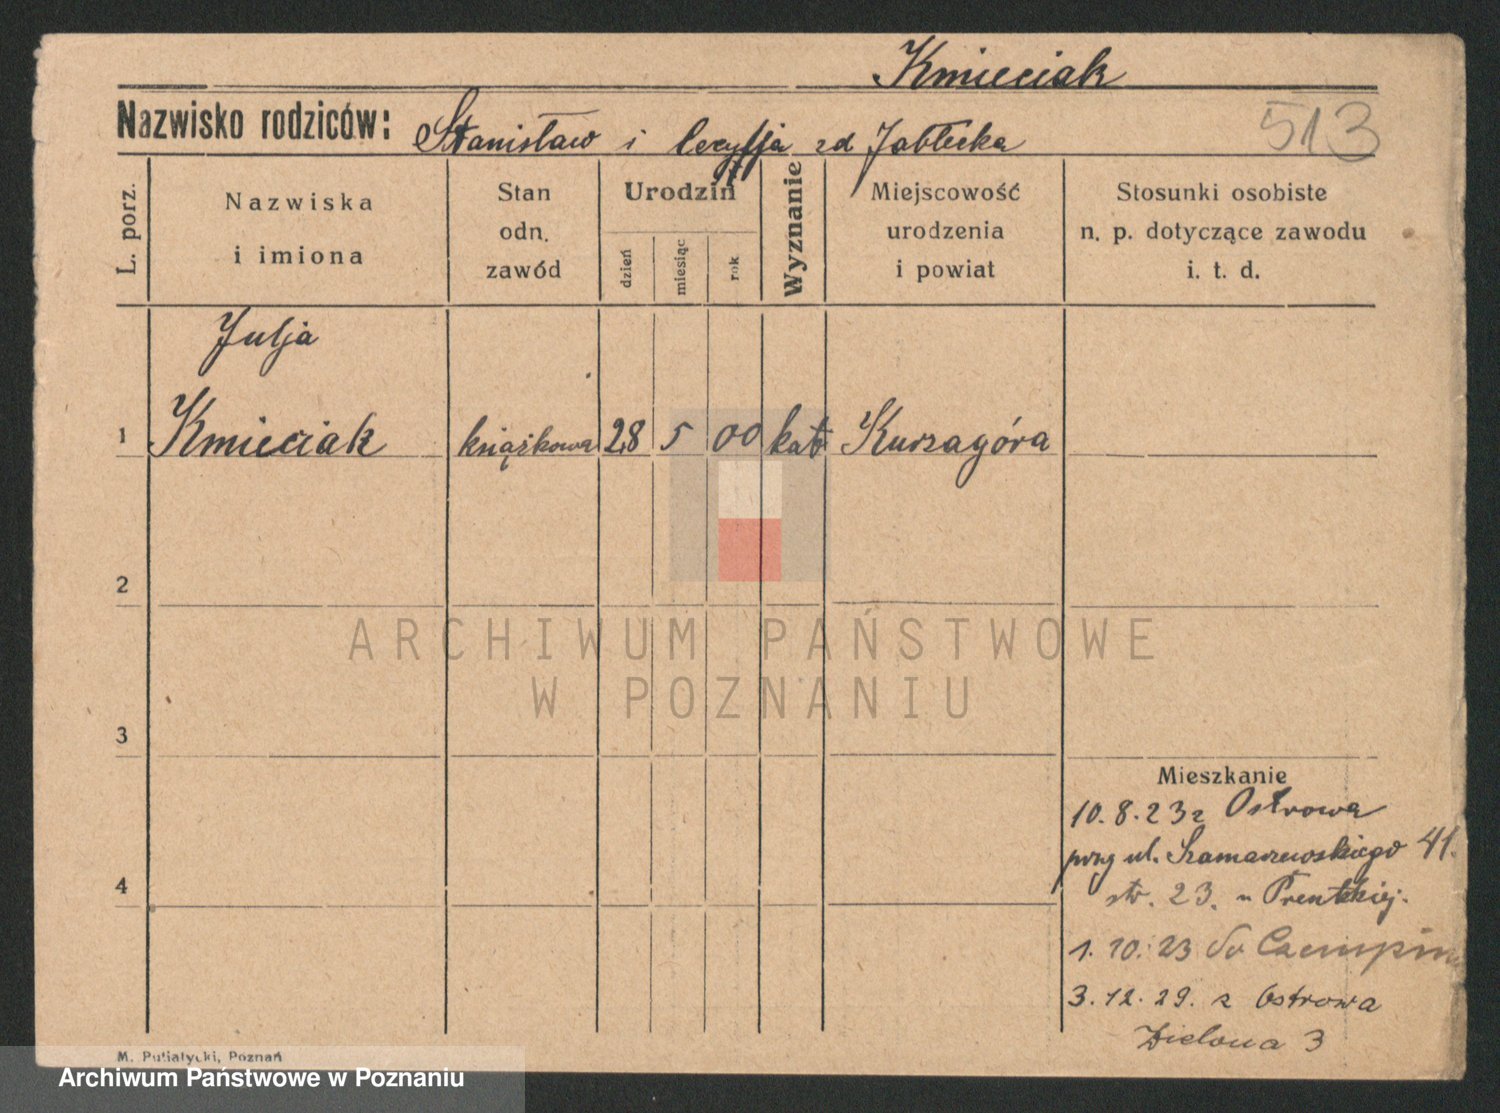 Kmieciak
513
Nazwisko rodziców: Stanisław i zd Jabłecka
L. porz.
Nazwiska
i imiona
Stan
odn.
zawód
Urodzin
dzień
miesiąc
rok
Wyznanie
Miejscowość
urodzenia
i powiat
Stosunki osobiste
n. p. dotyczące zawodu
i. t. d.
Julja
1 Kmieciak książkowa 28 5 00 kat Kurzagóra
2
ARCHIWUM PAŃSTWOWE
W POZNANIU
3
Mieszkanie
10. 8. 23 z Ostrowa
przy ul. Szamarzewskiego 41.
4
str. 23. u Prentkiej.
1. 10. 23 do
3. 12. 29. z Ostrowa
Zielona 3
M. Putiatycki, Poznań
Archiwum Państwowe w Poznaniu